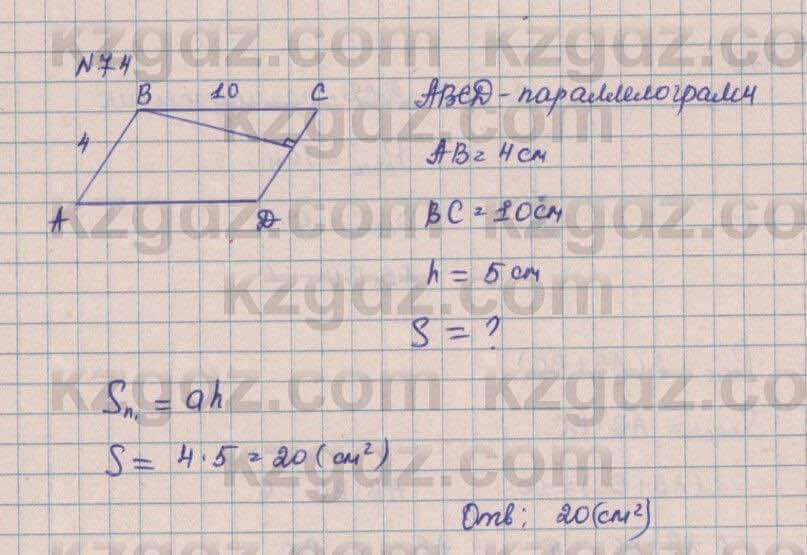 N74
B 10 C
4
A D
ABCD - параллелограмм
AB = 4 см
BC = 10 см
h = 5 см
S = ?
Sп. = ah
S = 4 · 5 = 20 (см²)
Отв: 20 (см²)
kzgdz.com kzgdz.com
kzgdz.com
kzgdz.com kzgdz.com
kzgdz.com
kzgdz.com kzgdz.com
kzgdz.com